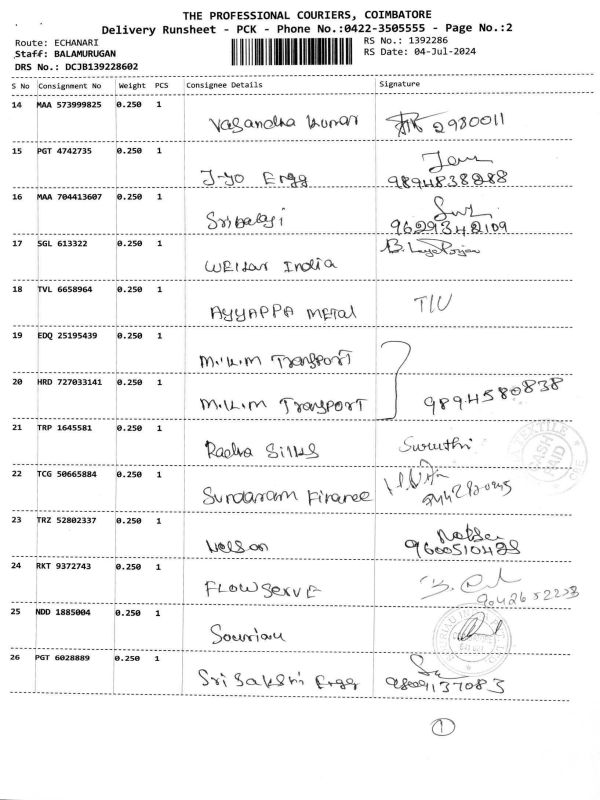 THE PROFESSIONAL COURIERS, COIMBATORE
Delivery Runsheet - PCK - Phone No.:0422-3505555 - Page No.:2
Route: ECHANARI RS No.: 1392286
Staff: BALAMURUGAN RS Date: 04-Jul-2024
DRS No.: DCJB139228602
S No Consignment No Weight PCS Consignee Details Signature
14 MAA 573999825 0.250 1
Vasandha kumar 2980011
15 PGT 4742735 0.250 1
J-yo Engg 9894838288
16 MAA 704413607 0.250 1
Sribalaji 9629342109
17 SGL 613322 0.250 1
India
18 TVL 6658964 0.250 1
AYYAPPA METAL T/U
19 EDQ 25195439 0.250 1
M.K.M Transport
20 HRD 727033141 0.250 1
M.K.M Transport 9894580838
21 TRP 1645581 0.250 1
Radha Silks Suruthi
TEXTILE
CASH PAID
22 TCG 50665884 0.250 1
Sundaram Finance
23 TRZ 52802337 0.250 1
Nelson 9600510425
24 RKT 9372743 0.250 1
FLOWSERVE 9042652223
25 NDD 1885004 0.250 1
Souriau
26 PGT 6028889 0.250 1
Sri Sakthi Engg 9809137083
1